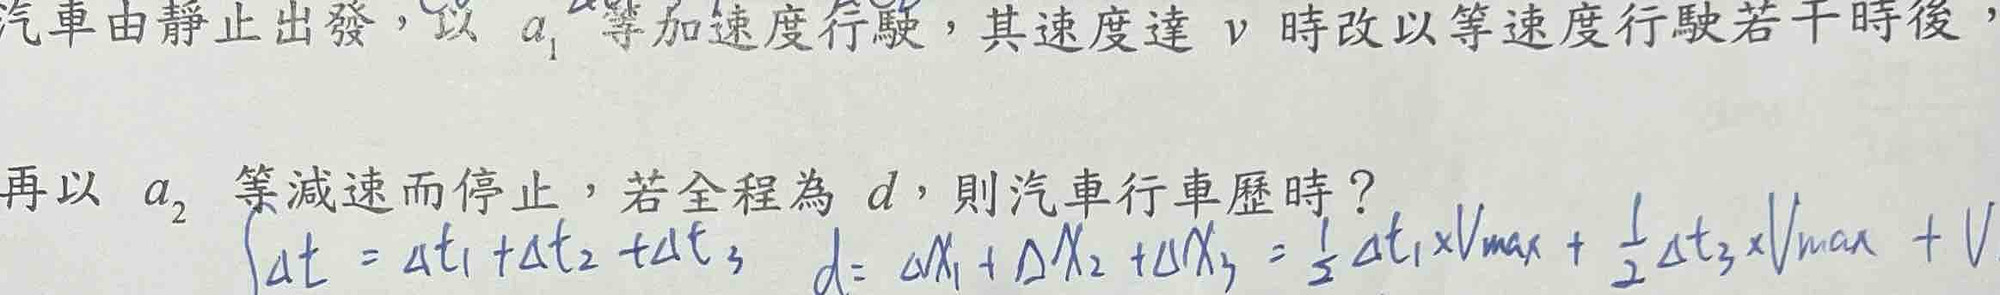 汽車由靜止出發，以 a₁ 等加速度行駛，其速度達 v 時改以等速度行駛若干時後，
再以 a₂ 等減速而停止，若全程為 d，則汽車行車歷時？
Δt = Δt₁ + Δt₂ + Δt₃ d = ΔX₁ + ΔX₂ + ΔX₃ = 1/2 Δt₁ × Vmax + 1/2 Δt₃ × Vmax + V